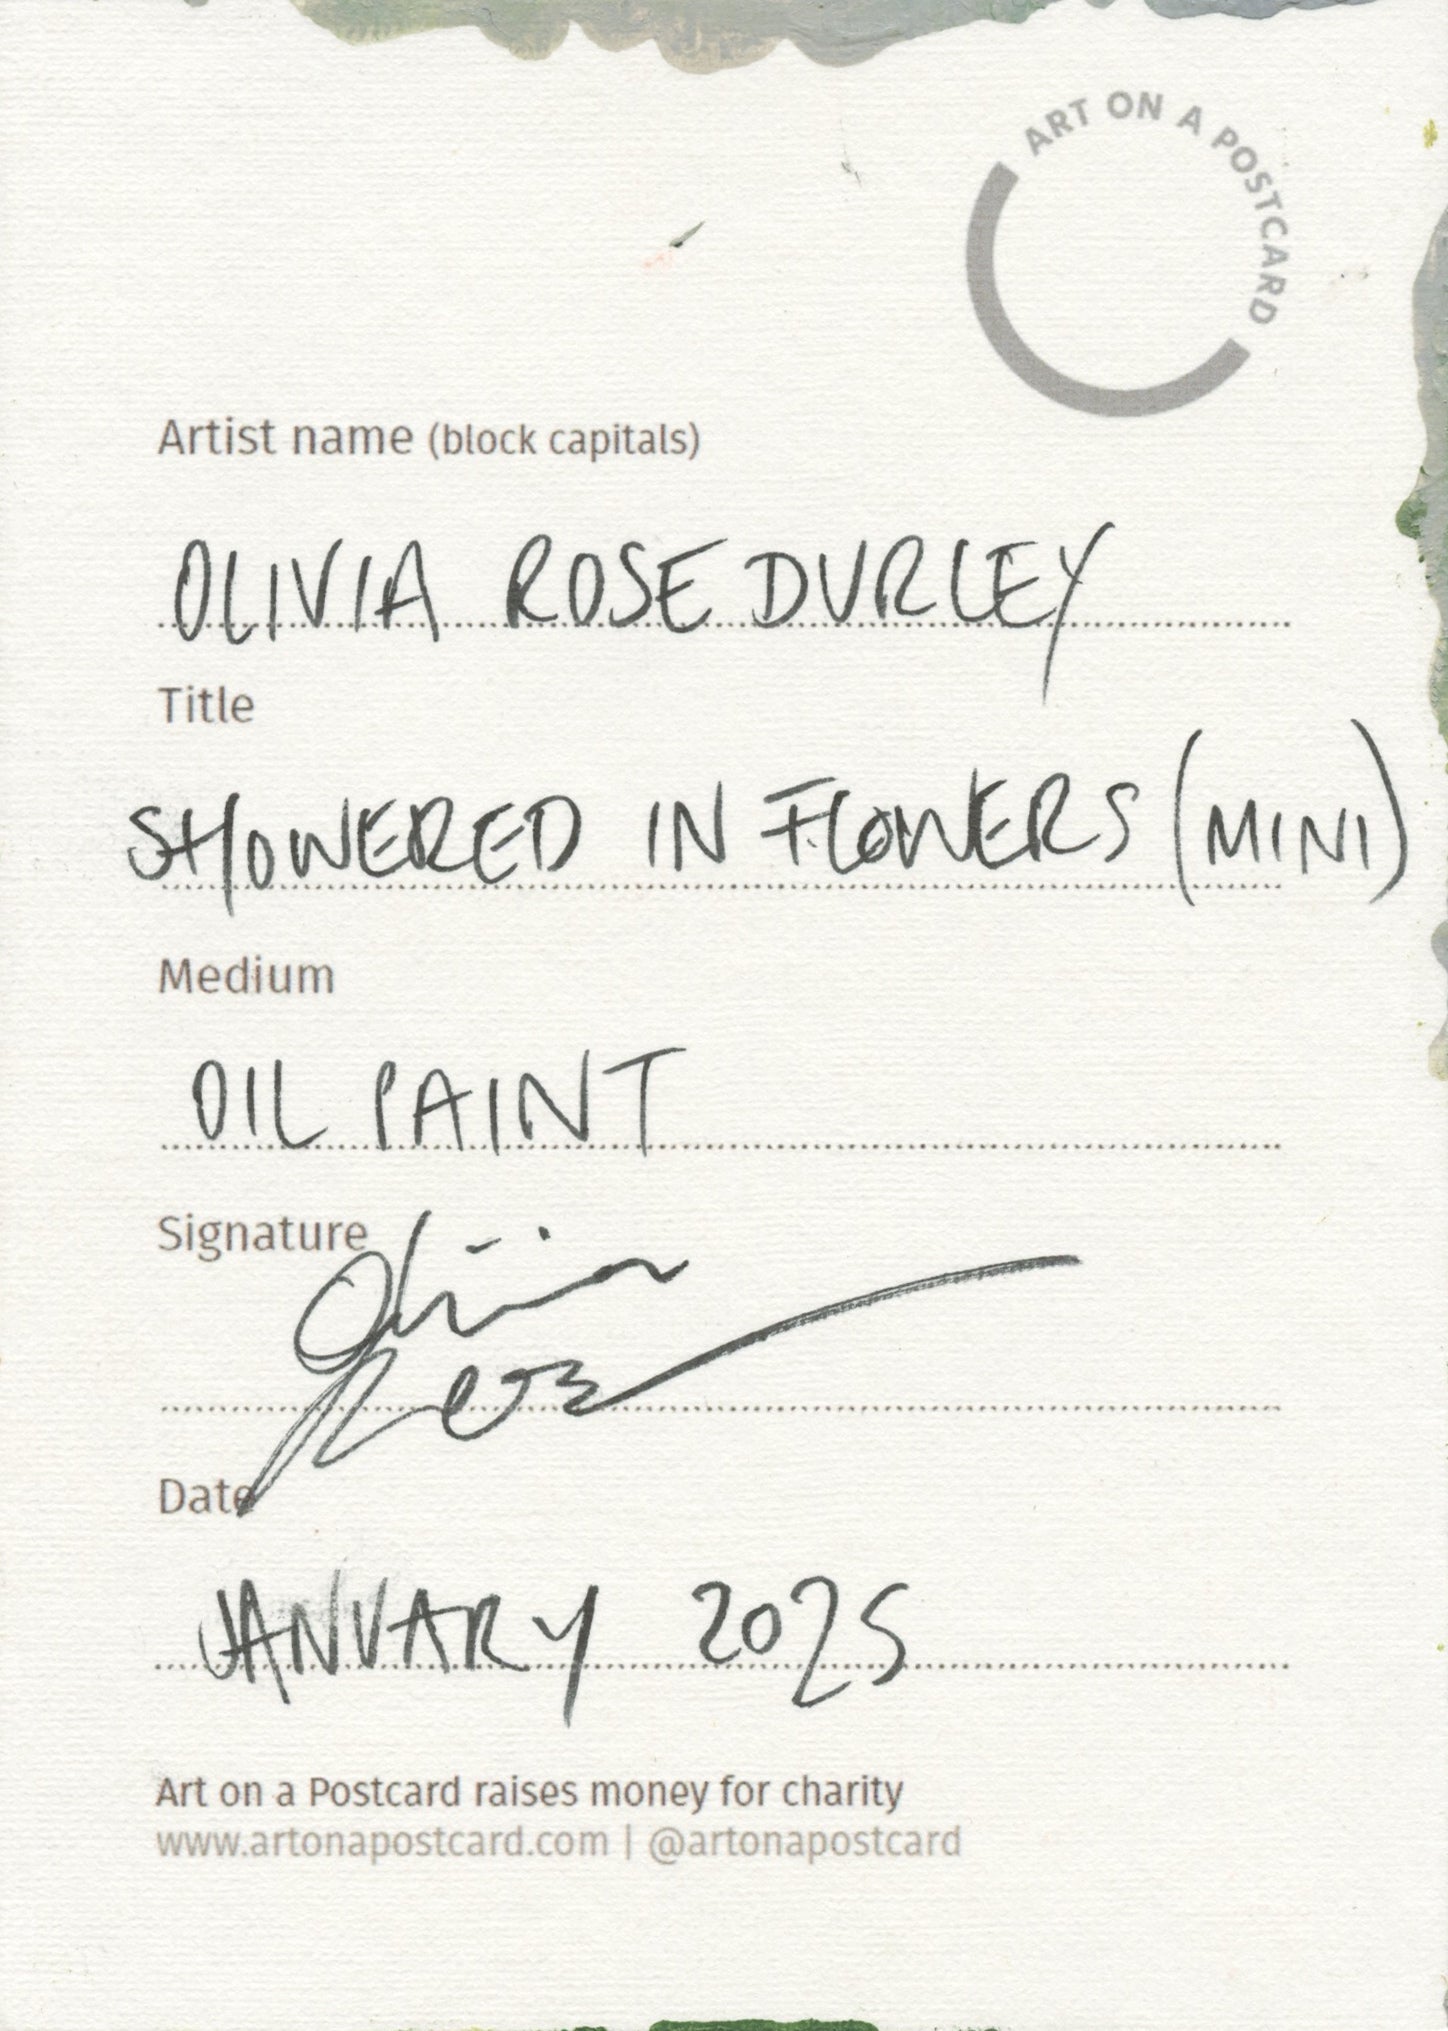 ART ON A POSTCARD
Artist name (block capitals)
OLIVIA ROSE DURLEY
Title
SHOWERED IN FLOWERS (MINI)
Medium
OIL PAINT
Signature
Olivia
Rose
Date
JANUARY 2025
Art on a Postcard raises money for charity
www.artonapostcard.com | @artonapostcard